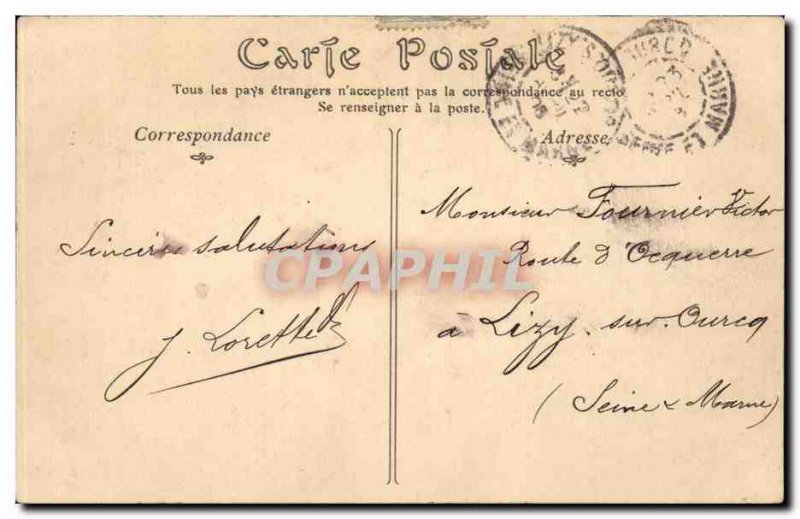 Carte Postale
Tous les pays étrangers n'acceptent pas la correspondance au recto
Se renseigner à la poste.
Correspondance
Adresse
Sincères salutations
J. Lorette
Monsieur Fournier Victor
Route d'Ocquerre
à Lizy-sur-Ourcq
(Seine & Marne)
CPAPHIL